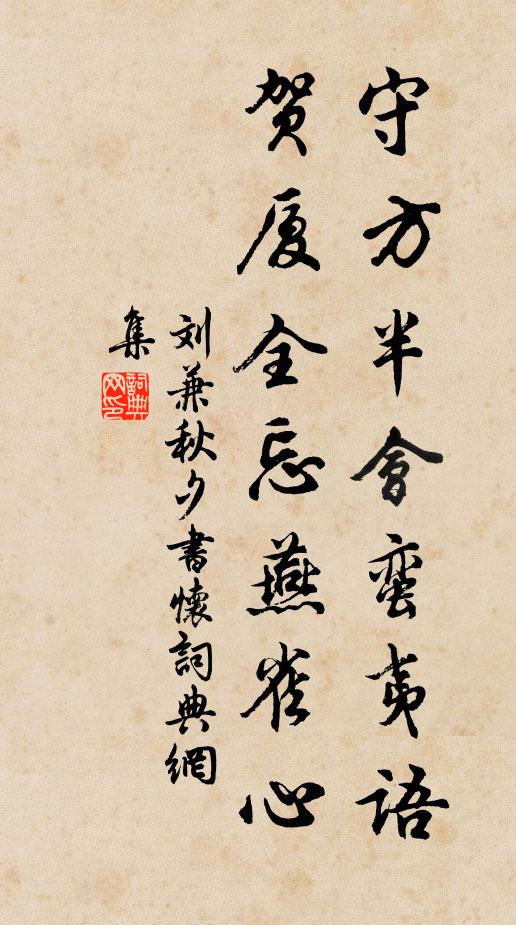 守方半會蛮夷语
贺厦全忘燕雀心
刘兼秋夕书懷词典網
集
詞典網印